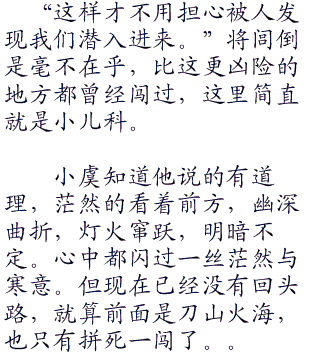 “这样才不用担心被人发
现我们潜入进来。”将闾倒
是毫不在乎，比这更凶险的
地方都曾经闯过，这里简直
就是小儿科。
小虞知道他说的有道
理，茫然的看着前方，幽深
曲折，灯火窜跃，明暗不
定。心中都闪过一丝茫然与
寒意。但现在已经没有回头
路，就算前面是刀山火海，
也只有拼死一闯了。。